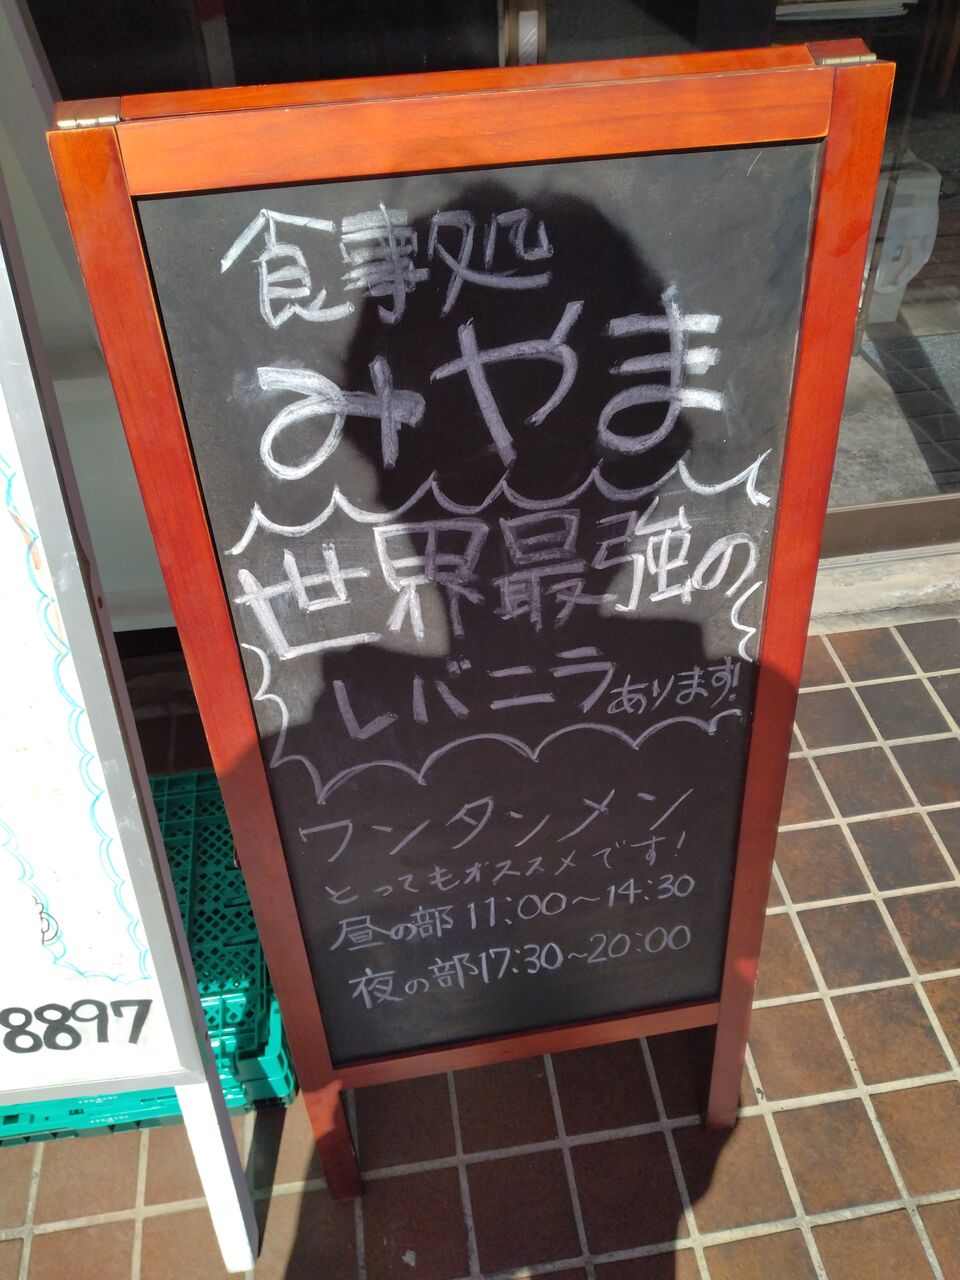 食事処
みやま
世界最強の
レバニラあります!
ワンタンメン
とってもオススメです!
昼の部 11:00〜14:30
夜の部 17:30〜20:00
8897